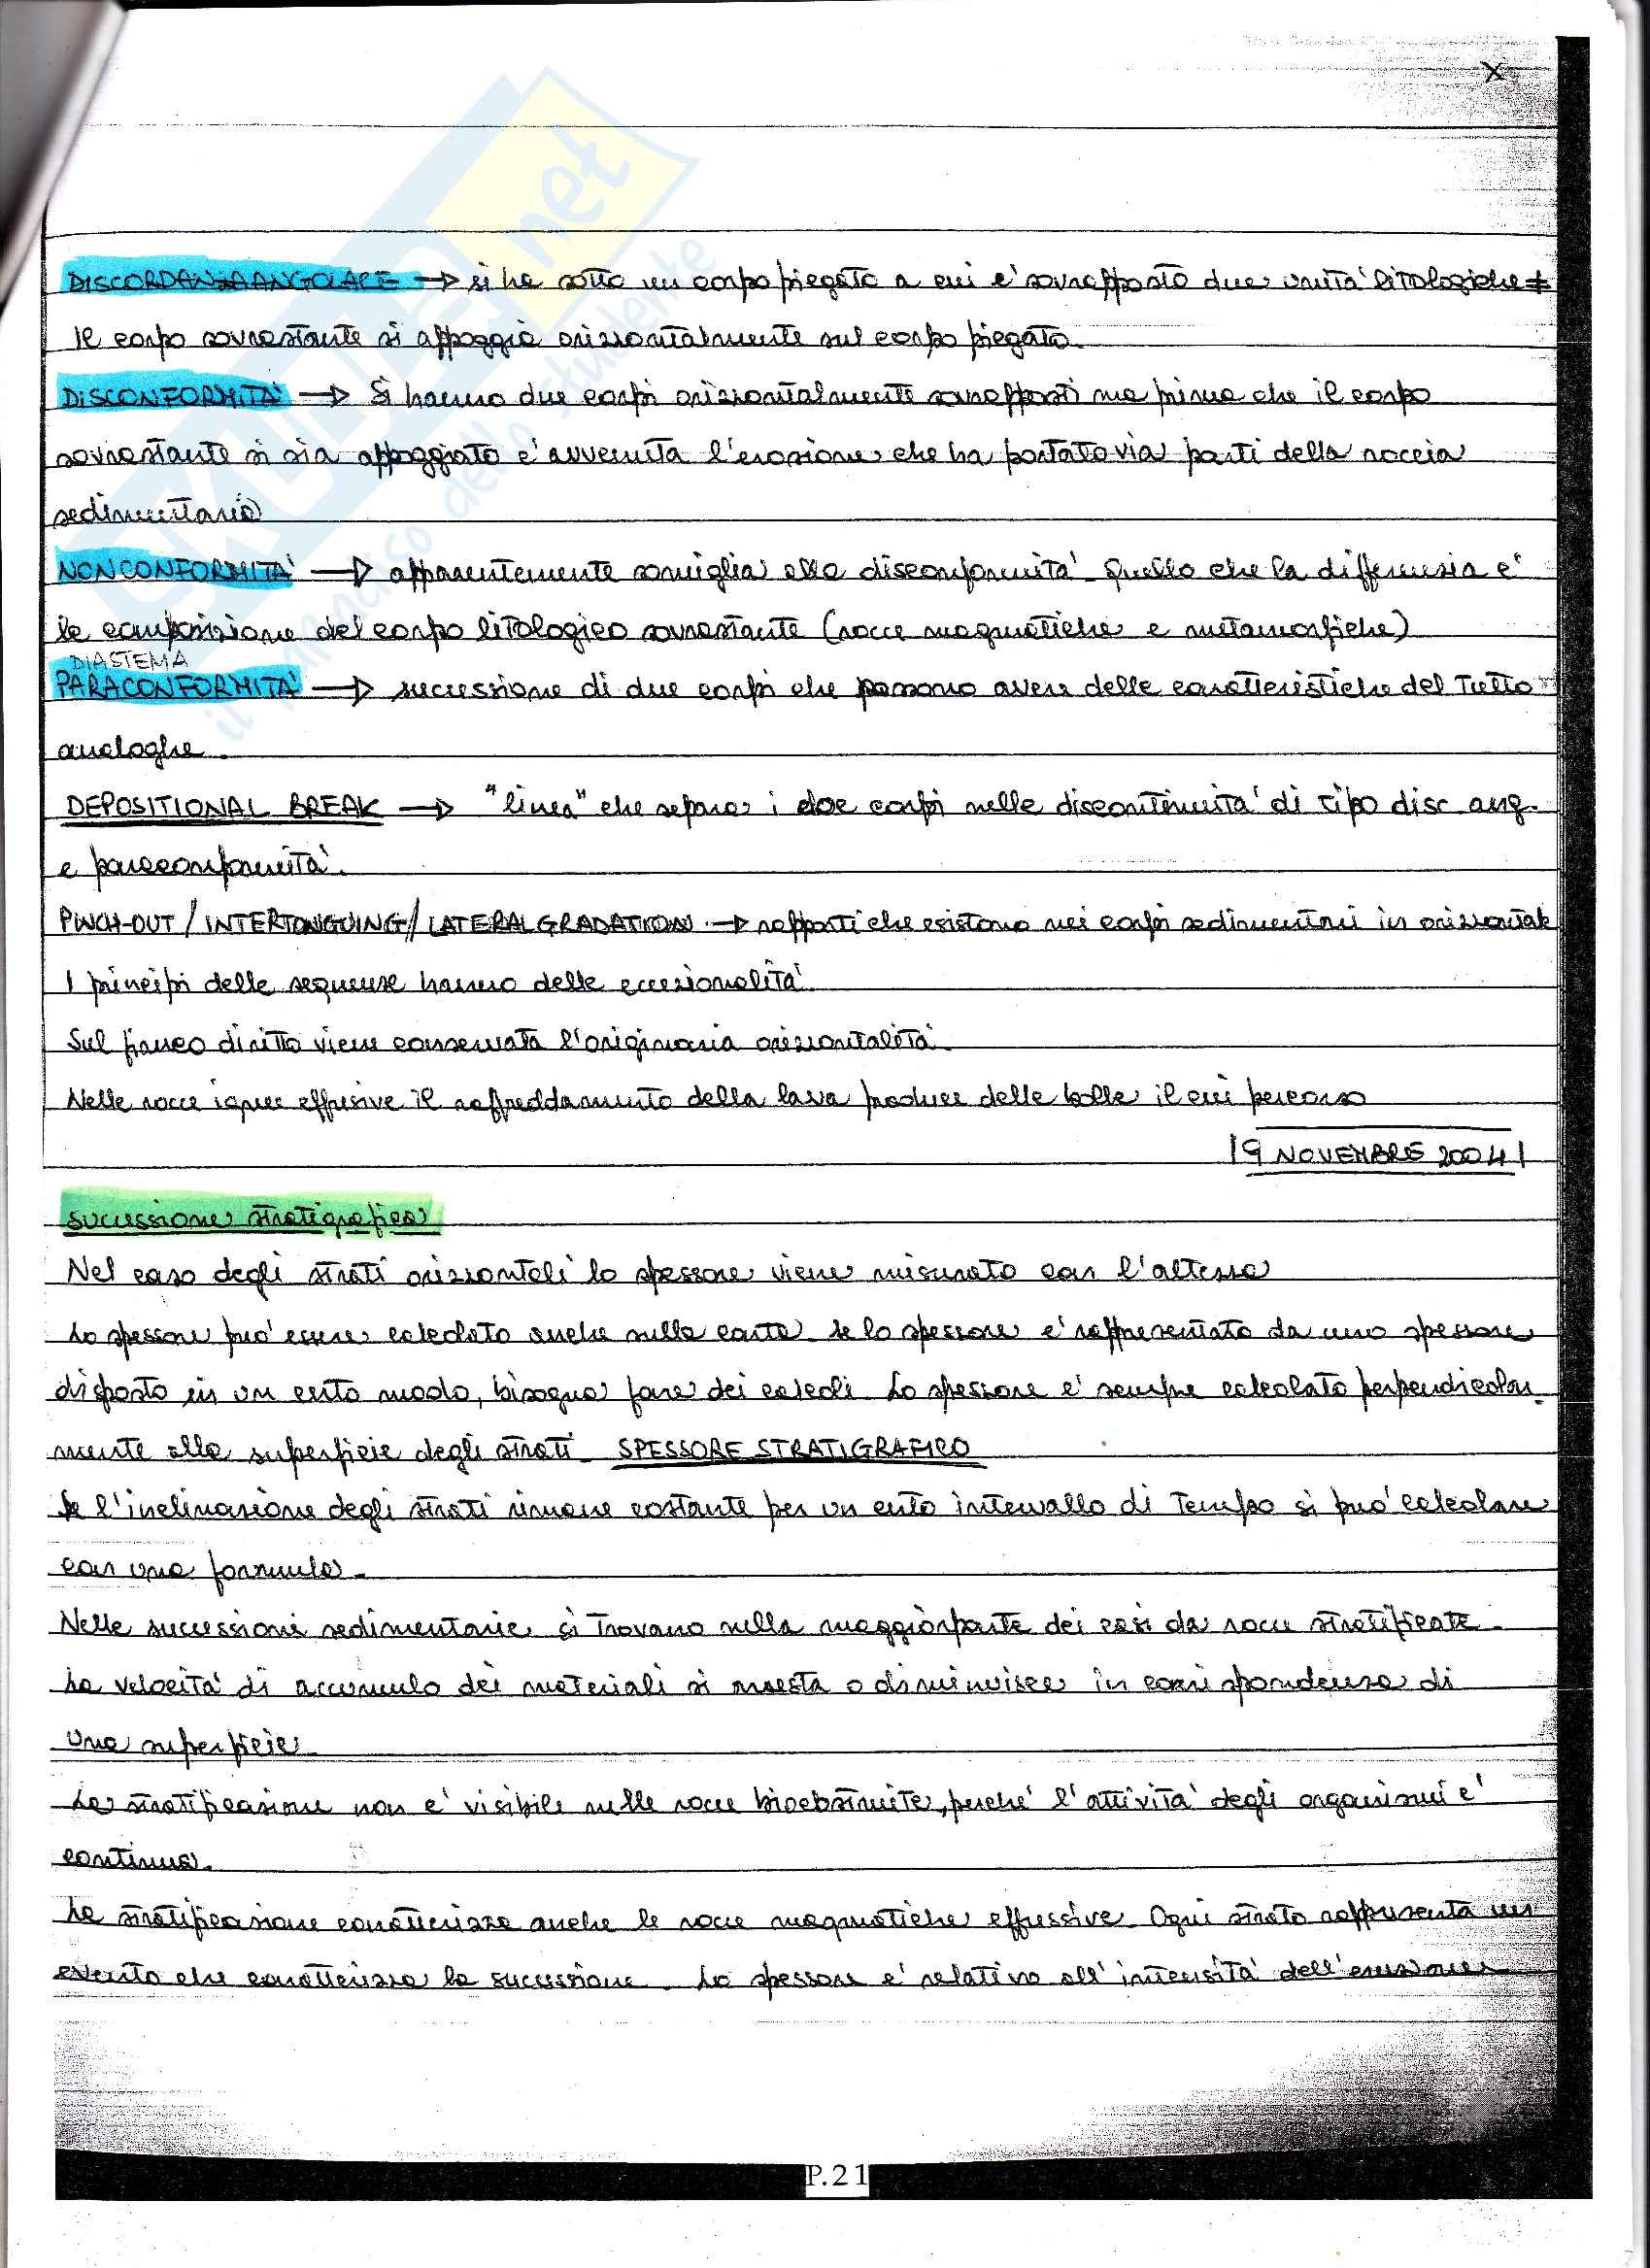 X
DISCORDANZA ANGOLARE → si ha sotto un corpo piegato a cui e' sovrapposto due unità litologiche ≠
Il corpo sovrastante si appoggia orizzontalmente sul corpo piegato.
DISCONFORMITA' → Si hanno due corpi orizzontalmente sovrapposti ma prima che il corpo
sovrastante si sia appoggiato e' avvenuta l'erosione che ha portato via parti della roccia
sedimentaria
NONCONFORMITA' → apparentemente somiglia alla disconformità. Quello che la differenzia e'
la composizione del corpo litologico sovrastante (rocce magmatiche e metamorfiche)
DIASTEMA
PARACONFORMITA' → successione di due corpi che possono avere delle caratteristiche del tutto
analoghe.
DEPOSITIONAL BREAK → "linea" che separa i due corpi nelle discontinuità di tipo disc. ang.
e paraconformità.
PINCH-OUT / INTERTONGUING / LATERAL GRADATION → rapporti che esistono nei corpi sedimentari in orizzontale
I principi delle sequenze hanno delle eccezionalità
Sul fianco diritto viene conservata l'originaria orizzontalità.
Nelle rocce ignee effusive il raffreddamento della lava produce delle bolle il cui percorso
19 NOVEMBRE 2004
Sucessione stratigrafica
Nel caso degli strati orizzontali lo spessore viene misurato con l'altezza
Lo spessore puo' essere calcolato anche sulla carta. Se lo spessore e' rappresentato da uno spessore
disposto in un certo modo, bisogna fare dei calcoli. Lo spessore e' sempre calcolato perpendicolar-
mente alla superficie degli strati. SPESSORE STRATIGRAFICO
Se l'inclinazione degli strati rimane costante per un certo intervallo di tempo si puo' calcolare
con una formula.
Nelle successioni sedimentarie si trovano nella maggior parte dei casi da rocce stratificate.
La velocità di accumulo dei materiali si arresta o diminuisce in corrispondenza di
una superficie.
La stratificazione non e' visibile nelle rocce biocostruite, perché l'attività degli organismi e'
continua.
La stratificazione caratterizza anche le rocce magmatiche effussive. Ogni strato rappresenta un
evento che caratterizza la sucessione. Lo spessore e' relativo all'intensità dell'eruzione
P.21
SKUOLA.net
il paradiso dello studente